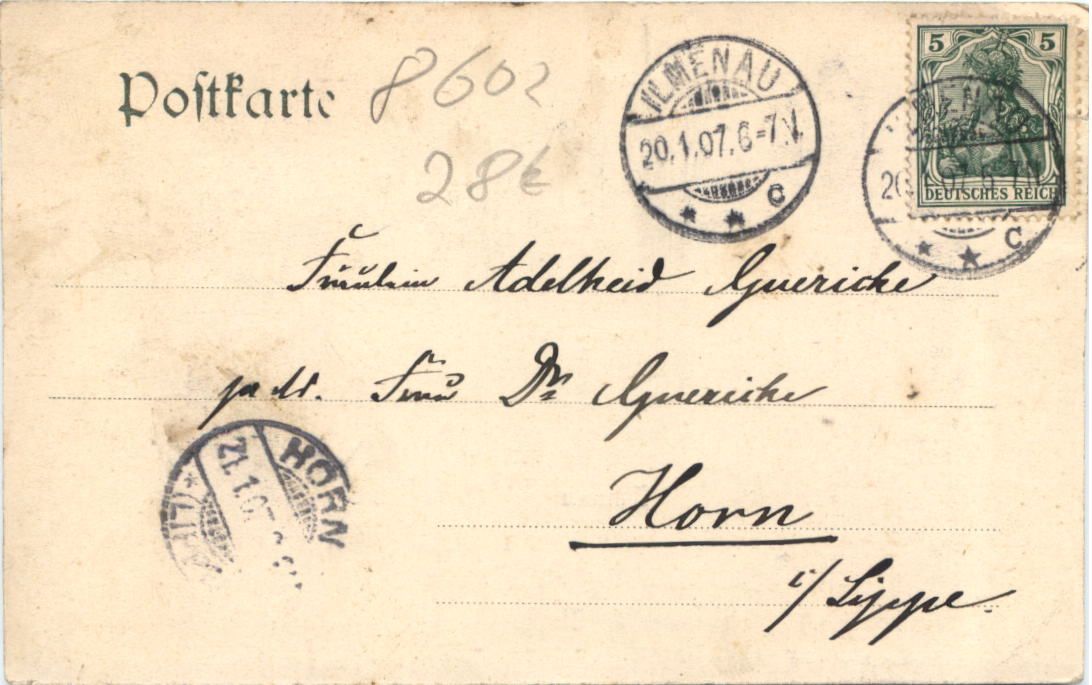 Postkarte
8602
28€
ILMENAU
20.1.07.6-7N.
* * C
5 5
DEUTSCHES REICH
20.1.07.6-7N.
* * C
Fräulein Adelheid Guericke
p. Adr. Frau Dr Guericke
Horn
i/ Lippe.
HORN
21.1.07